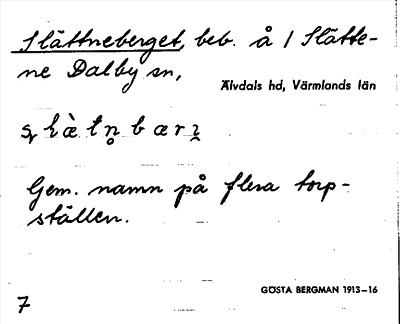 Slättneberget, beb. å / Slätte-
ne Dalby sn,
Älvdals hd, Värmlands län
Gem. namn på flera torp-
ställen.
GÖSTA BERGMAN 1913–16
7